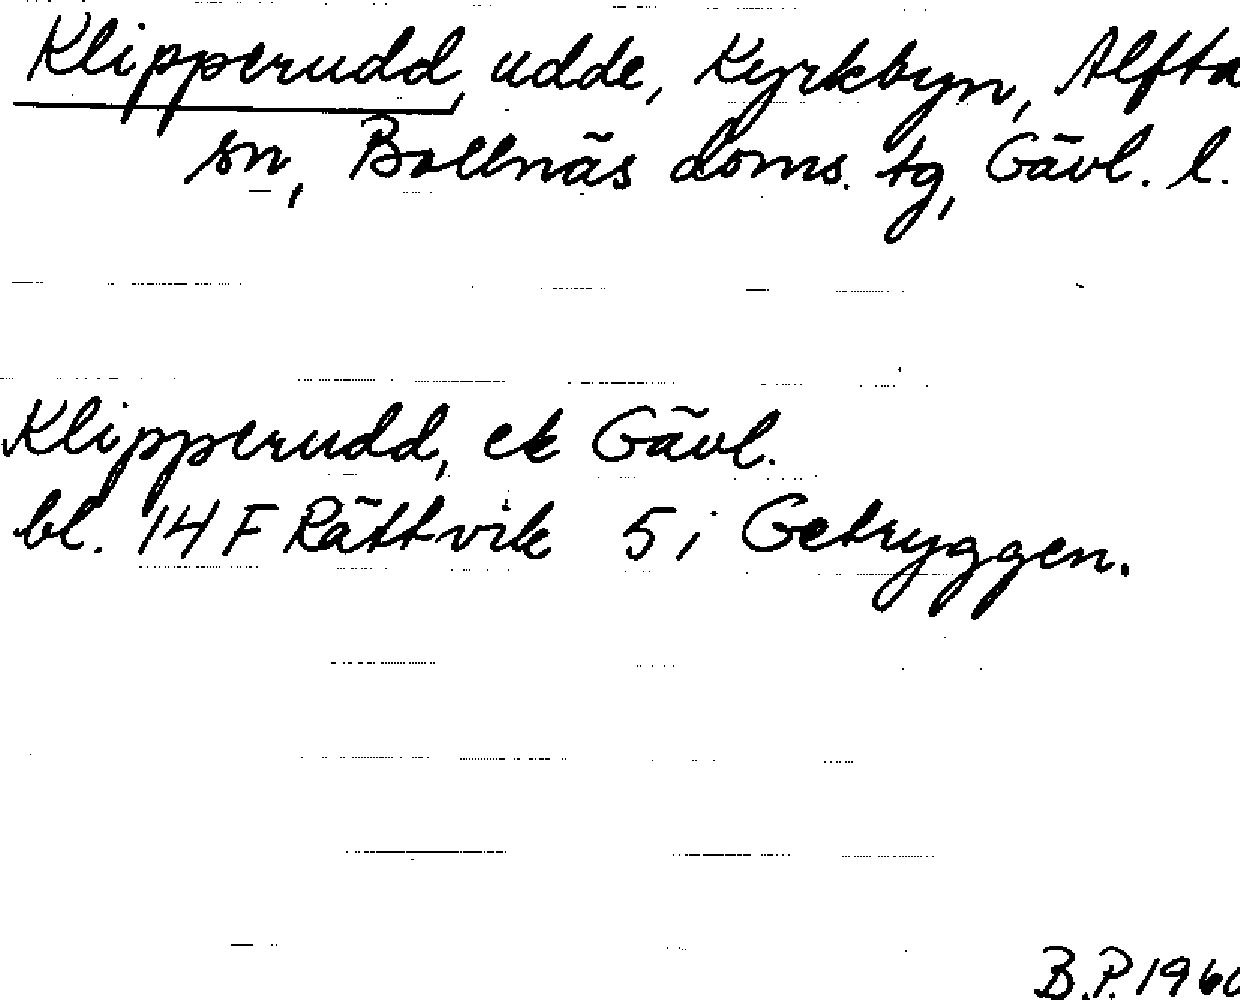 Klipperudd, udde, Kyrkbyn, Alfta
sn, Bollnäs doms. tg, Gävl. l.
Klipperudd, ek Gävl.
bl. 14 F Rättvik 5 i Getryggen.
B.P. 1960